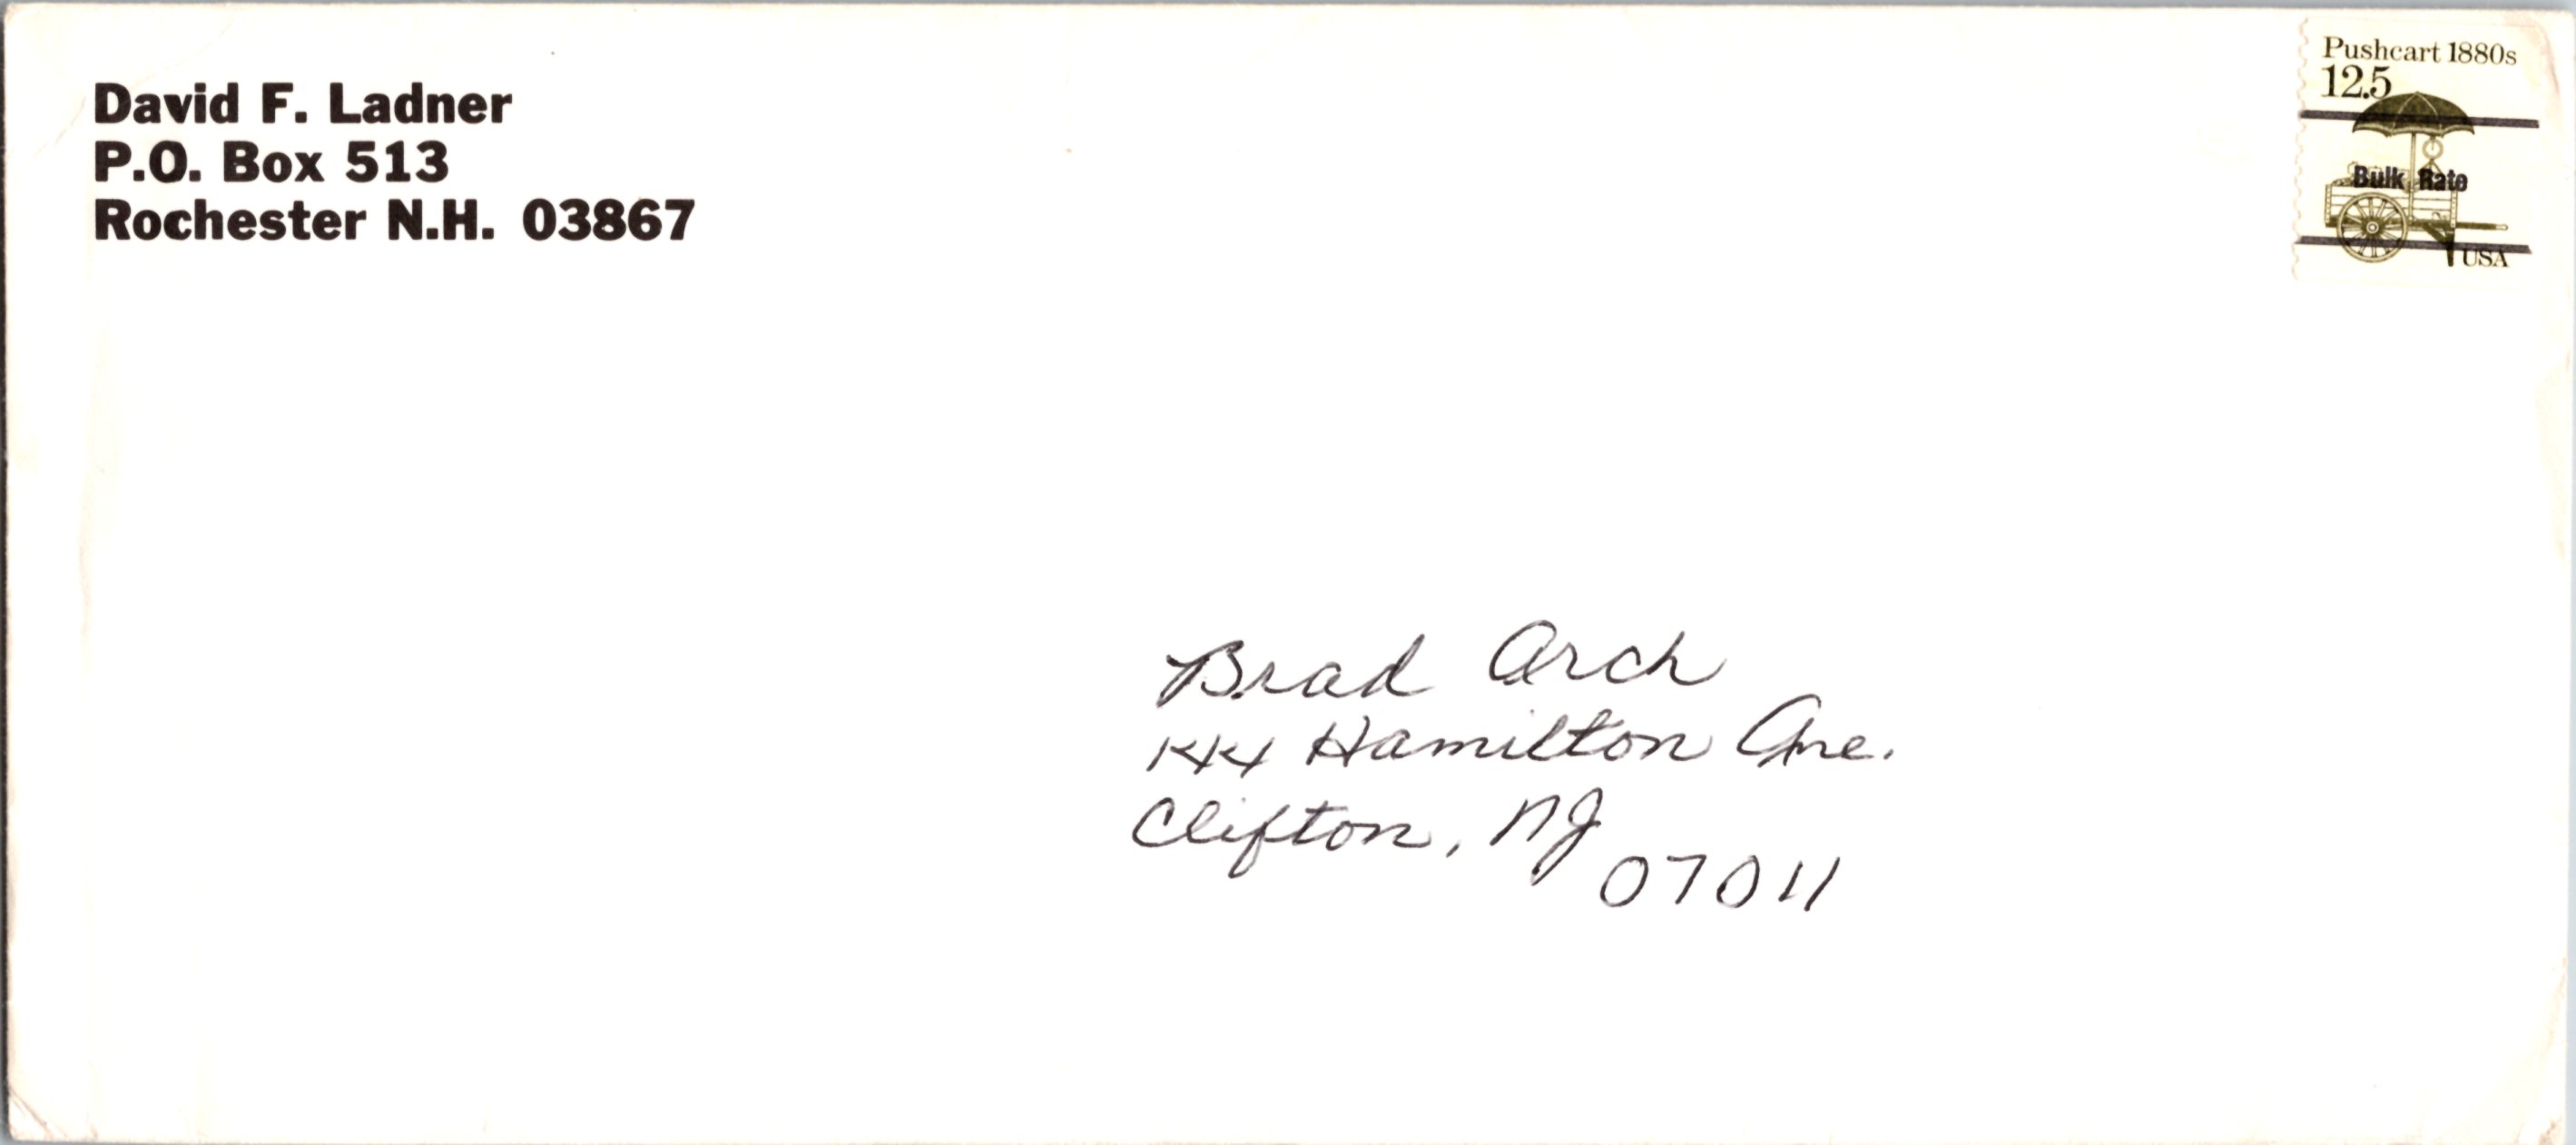 David F. Ladner
P.O. Box 513
Rochester N.H. 03867
Pushcart 1880s
12.5
Bulk Rate
USA
Brad Arch
144 Hamilton Ave.
Clifton, NJ
07011